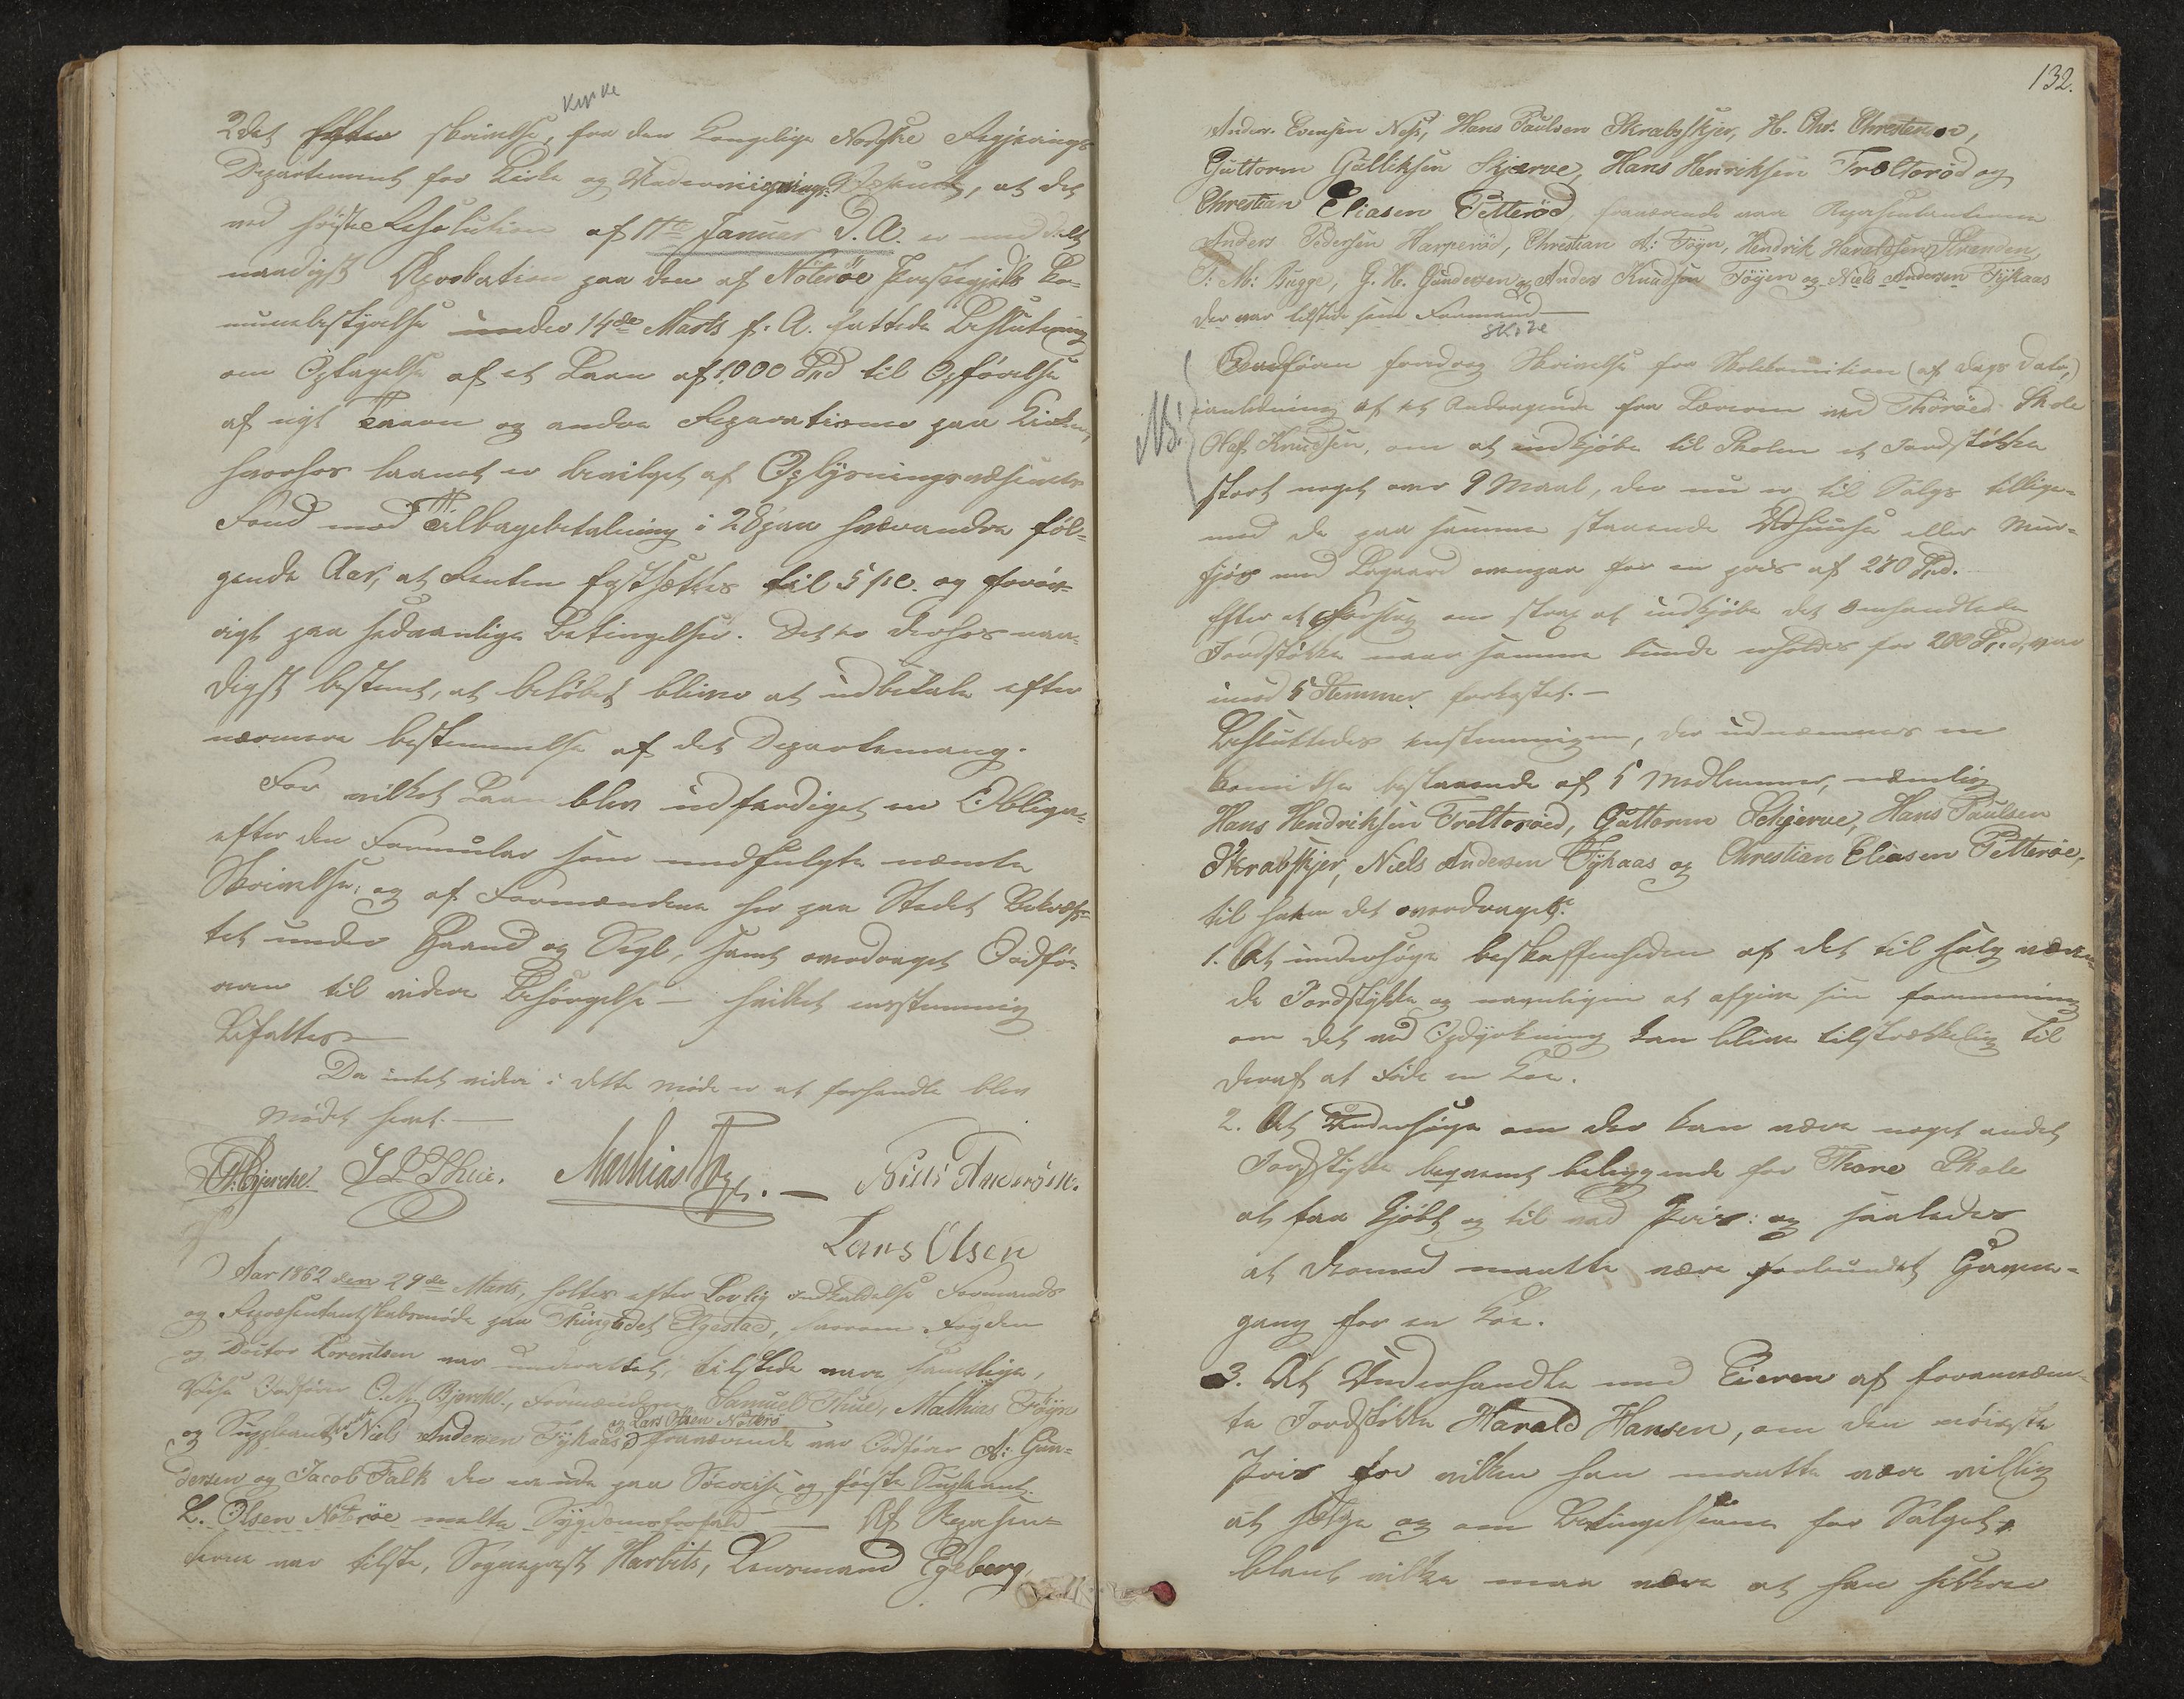 Kirke
2det skrivelse, fra den Kongelige Norske Regjerings
Departement for Kirke og Undervisnings, at det
ved høiste Resolution af 17te Januar D.A. er meddelt
naadigst Approbation paa den af Nøterøe Prestegjelds Ko-
munebestyrelse under 14de Marts f. A. fattede Beslutning
om Optagelse af et Laan af 1,000 Spd til Opførelse
af nyt Taarn og andre Reparationer paa Kirken,
hvorhos laanet er bevilget af Oplysningsvæsenets
Fond mod Tilbagebetaling i 28 paa hverandre føl-
gende Aar, at Renten fastsættes til 5 pC. og forøv-
rigt paa sedvanlige Betingelser. Det er derhos naa-
digst bestemt, at beløbet bliver at udbetale efter
nærmere bestemmelse af det Departemang.
For vilket Laan blev udfærdiget en Obliga-
efter den Formular som medfulgte nævnte
Skrivelse, og af Formændene her paa Stedet Bekræf-
tet under Haand og Segl, samt overdraget Ordfø-
reren til videre Besørgelse – hvilket enstemmig
Bifaltes
Da intet videre i dette Møde er at forhandle blev
Mødet hevet. —
C.M. Bjerche S L Thue. Mathias Føyn. — Niels Andersen.
Lars Olsen
Aar 1862 den 29de Marts, holtes efter Lovlig Indkaldelse Formands
og Repræsentantskabsmøde paa Thingstedet Elgestad, hvorom Fogden
og Doctor Lorentsen var underrettet, tilstede vare samtlige,
Ordfører C. M. Bjerche, Formændene Samuel Thue, Mathias Føyn
og Lars Olsen Nøtterø
og Suppleant Niels Andersen Tykaas, fraværende var Ordfører A: Gun-
dersen og Jacob Falk der er ude paa Søereise og første Supleant
L. Olsen Nøterøe meldte Sygdomsforfald — Af Represen-
terne var tilste, Sogneprest Harbits, Lensmand Egeberg,
132.
Anders Evensen Nes, Hans Paulsen Skrabskjer, H. Chr. Christensen,
Guttorm Gulliksen Skjerve, Hans Henriksen Træltorød og
Chrestian Eliasen Petterød, fraværende var Representanterne
Anders Pedersen Harperød, Christian A: Føyn, Hendrik Stranden,
T: M: Bugge, G. H. Gundersen og Anders Knudsen Føyen og Niels Andersen Tykaas
der var tilstede som Formand —
Skole
NB!
Ordføren foredrog Skrivelse fra Skolekomition (af Dags Dato,)
ianledning af et Andragende fra Læreren ved Thorød Skole
Olaf Knudsen, om at indkjøbe til Skolen et Jordstøkke
stort noget over 9 Maal, der nu er til Salgs tillige-
med de paa samme staaende Udhuuse eller Mur-
fjøs med Ladgaard ovenpaa for en pris af 280 Spd.
Efter et Forslag om strax at indkjøbe det omhandlede
Jordstøkke naar samme kunde erholdes for 200 Spd, var
imod 5 Stemmer forkastet. —
Besluttedes enstemmigen, der udnævnes en
komitee bestaaende af 5 Medlemmer, nemlig
Hans Hendriksen Treltorøed, Guttorm Schjerve, Hans Paulsen
Skrabskjer, Niels Andersen Tykaas og Chrestian Eliasen Petterøe,
til hvem det overdrages
1. At undersøge beskaffenheden af det til salg være-
de Jordstykke og navnligen at afgive sin formening
om det ved Opdyrkning kan blive tilstrækkelig til
deraf at føde en Koe.
2. At Undersøge om der kan være noget andet
Jordstykke beqvemt beliggende for Thorø Skole
at faa kjøbt og til vad Priis: og saaledes
at dermed maatte være forbundet Havne-
gang for en Koe.
3. At Underhandle med Eieren af forannævn-
te Jordstøkke Harald Hansen, om den nøieste
Pris for vilken han maatte være villig
at sælge og om Betingelserne for Salget,
blant vilke maa være at han sikkrer